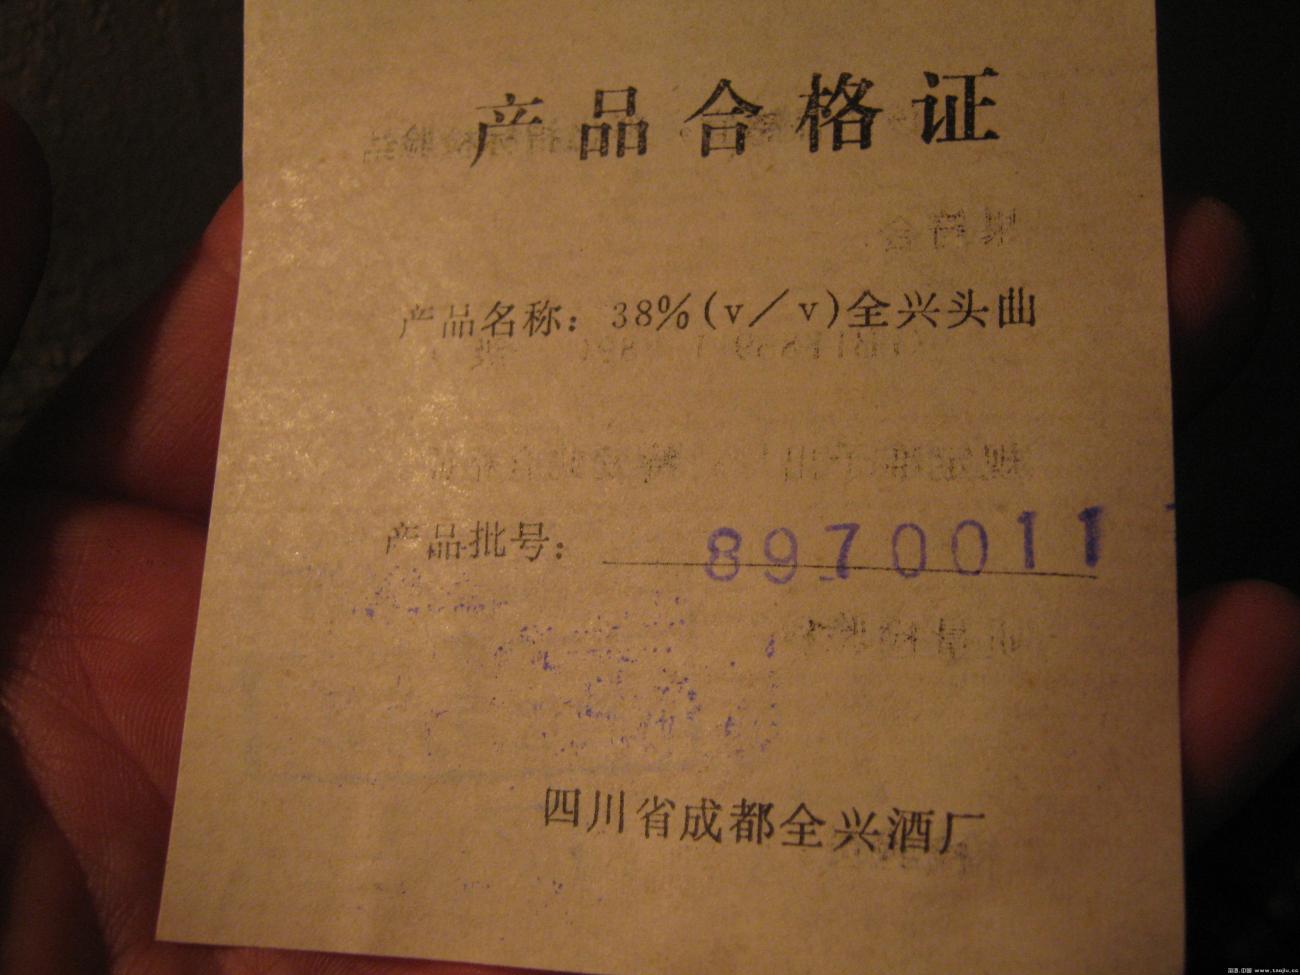 产品合格证
产品名称：38%(v／v)全兴头曲
产品批号：8970011
四川省成都全兴酒厂
www.taojiu.cc